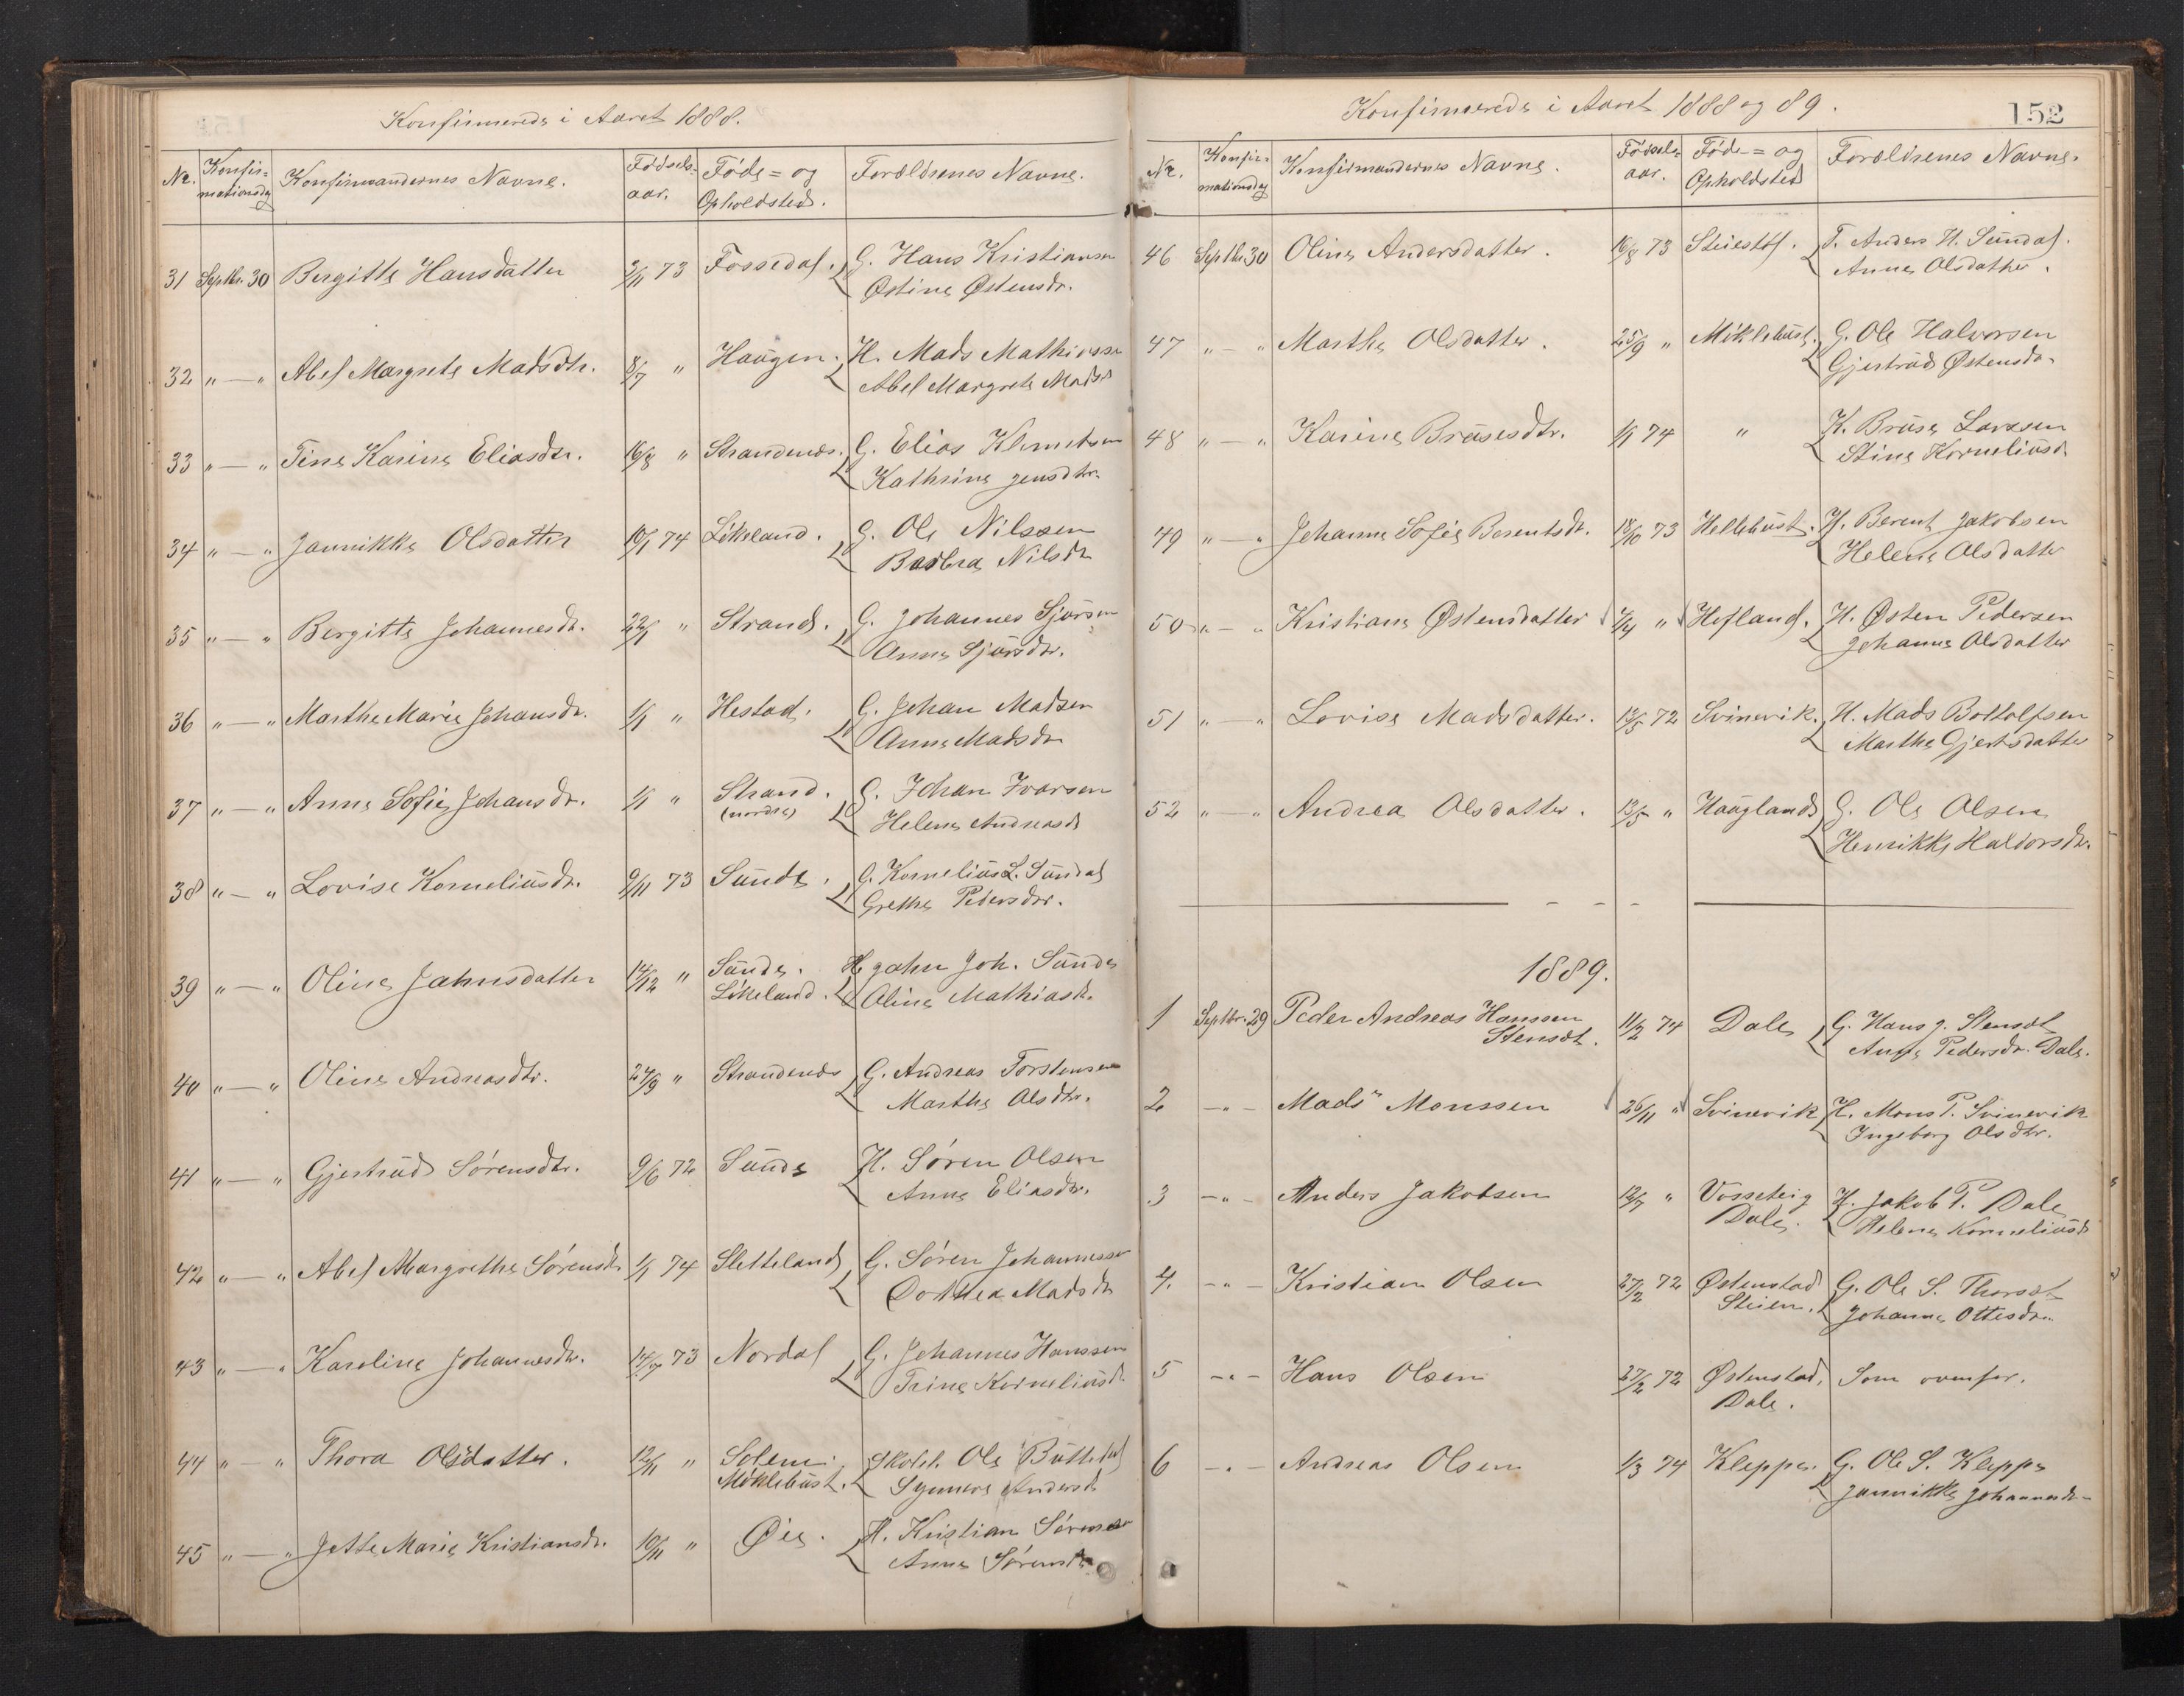 Konfirmerede i Aaret 1888.
Nr. Konfirmationsdag Konfirmandernes Navne. Fødselsaar. Føde= og Opholdsted. Forældrenes Navne.
31 Septbr. 30 Bergitte Hansdatter 2/11 73 Fossedal. G. Hans Kristiansen
Østine Østensdr.
32 " — " Abel Margrete Madsdtr. 8/7 " Haugen. H. Mads Mathiassen
Abel Margrete Madsd
33 " — " Tine Karine Eliasdtr. 16/8 " Strandenæs. G. Elias Klemetsen
Kathrine Jensdtr.
34 " — " Jannikke Olsdatter 10/1 74 Løkeland. G. Ole Nilssen
Barbra Nilsdr
35 " — " Bergitte Johannesdr. 22/1 " Strand. G. Johannes Sjursen
Anne Sjursdtr.
36 " — " Marthe Marie Johansdr. 1/1 " Hestad. G. Johan Madsen
Anne Madsdr
37 " — " Anne Sofie Johansdr. 1/1 " Strand. G. Johan Ivarsen
(nordre) Helene Andreasd
38 " — " Lovise Korneliusdr. 9/11 73 Sunde. G. Kornelius L. Sundal
Grethe Pedersdtr.
39 " — " Oline Jahnsdatter 14/12 " Sunde. H Jahn Joh. Sunde
Løkeland. Oline Mathiasdr.
40 " — " Oline Andreasdtr. 24/9 " Strandenæs G. Andreas Torstensen
Marthe Olsdtr.
41 " — " Gjertrud Sørensdtr. 9/6 72 Sunde H. Søren Olsen
Anne Eliasdtr.
42 " — " Abel Margrethe Sørensdr 1/1 74 Sletteland G. Søren Johannessen
Dorthea Madsdr
43 " — " Karoline Johannesdtr. 14/7 73 Nordal G. Johannes Hanssen
Trine Korneliusd.
44 " — " Thora Olsdatter. 12/11 " Solem. Skolel. Ole Büttedal
Møklebust. Synneve Andersd
45 " — " Jette Marie Kristiansdr. 10/11 " Øie. H. Kristian Sørensen
Anne Sørensdr
Konfirmerede i Aaret 1888 og 89.
152
Nr. Konfirmationsdag Konfirmandernes Navne. Fødselsaar. Føde= og Opholdsted Forældrenes Navne.
46 Septbr. 30 Oline Andersdatter. 16/8 73 Steiestøl. T. Anders H. Sundal.
Anne Olsdatter.
47 " — " Marthe Olsdatter. 25/9 " Møklebust. G. Ole Halvorsen
Gjertrud Østensdr
48 " — " Karine Brusesdtr. 1/1 74 " H. Bruse Larssen
Stine Korneliusd.
49 " — " Johanne Sofie Berentsdr. 18/10 73 Hellebust. H. Berent Jakobsen
Helene Olsdatter
50 " — " Kristiane Østensdatter 4/4 " Hefland. H. Østen Pedersen
Johanne Olsdatter
51 " — " Lovise Madsdatter. 13/5 72 Svinevik. H. Mads Bottolfsen
Marthe Gjertsdatter
52 " — " Andrea Olsdatter. 13/5 " Haugland G. Ole Olsen
Henrikke Haldorsdr.
1889.
1 Septbr. 29 Peder Andreas Hanssen 11/2 74 Dale G. Hans J. Stensæt
Stensæt. Anne Pedersdr. Dale.
2 — " — Mads Monssen 26/11 " Svinevik H. Mons P. Svinevik
Ingeborg Olsdtr.
3 — " — Anders Jakobsen 12/7 " Vosseteig H. Jakob P. Dale
Dale. Helene Korneliusd
4. — " — Kristian Olsen 27/2 72 Østenstad G. Ole S. Thorsæt
Steien. Johanne Ottesdr.
5 — " — Hans Olsen 27/2 72 Østenstad. Som ovenfor.
Dale.
6 — " — Andreas Olsen 1/3 74 Kleppe. G. Ole S. Kleppe
Jannikke Johannesdr